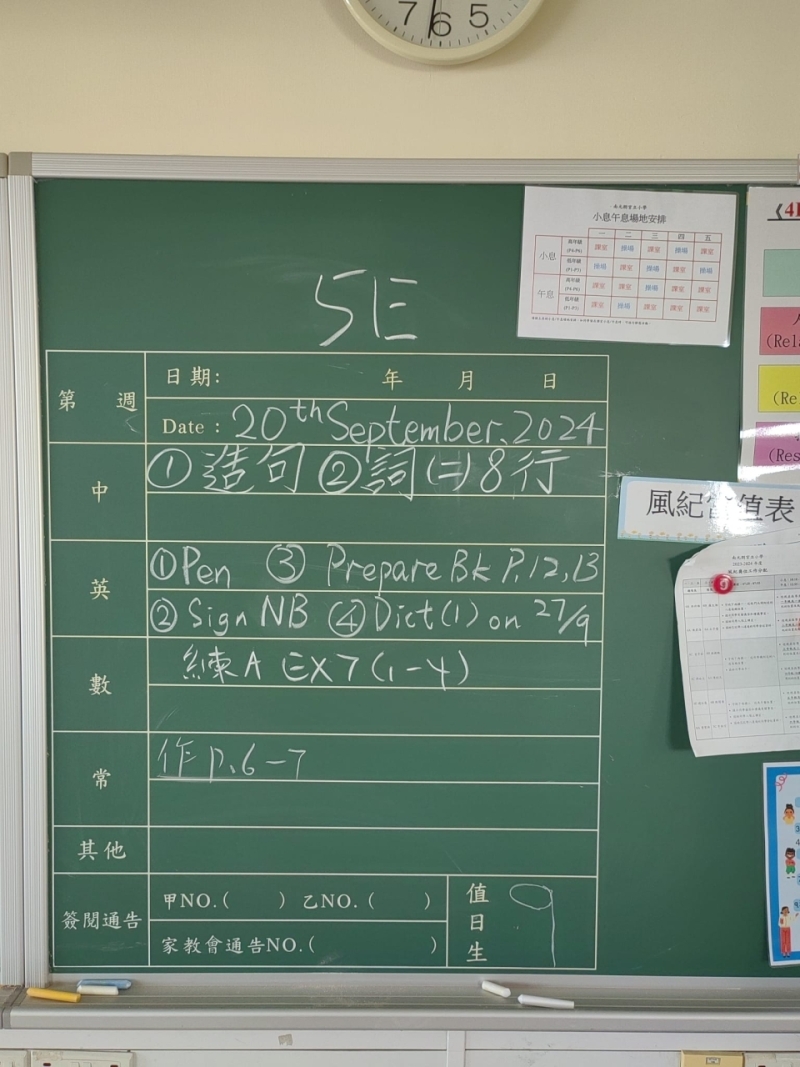 7 6 5
小息午息場地安排
一 二 三 四 五
小息 高年級 (P4-P6) 課室 操場 課室 操場 課室
低年級 (P1-P3) 操場 課室 操場 課室 操場
午息 高年級 (P4-P6) 課室 課室 操場 課室 課室
低年級 (P1-P3) 課室 操場 課室 課室 課室
5E
第 週
日期: 年 月 日
Date : 20th September, 2024
中
①造句 ②詞(二)8行
英
①Pen ③ Prepare Bk P.12,13
②Sign NB ④Dict(1) on 27/9
數
練A EX7(1-4)
常
作P.6-7
其他
簽閱通告
甲NO.( ) 乙NO.( )
家教會通告NO.( )
值日生 9
《4
(Rel
(Re
(Res
風紀當值表